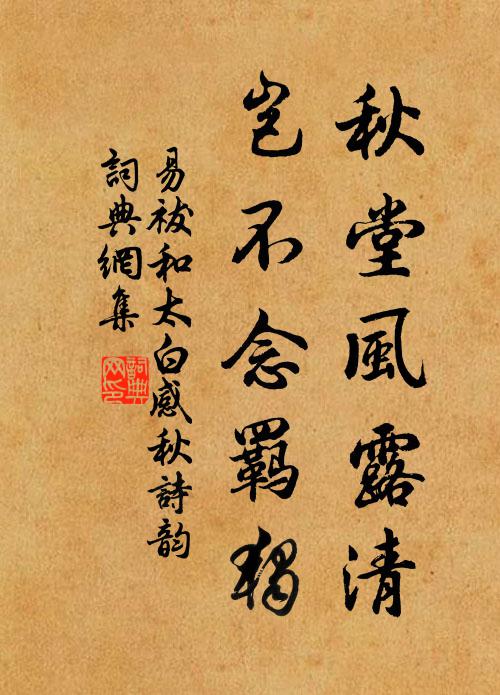 秋堂風露清
豈不念羈獨
易祓和太白感秋詩韵
詞典網集
詞典
网印